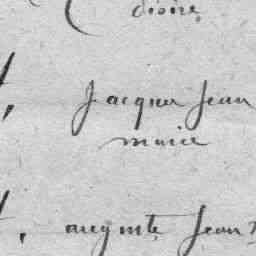 désiré
t, jacques jean
marie
t, auguste jean